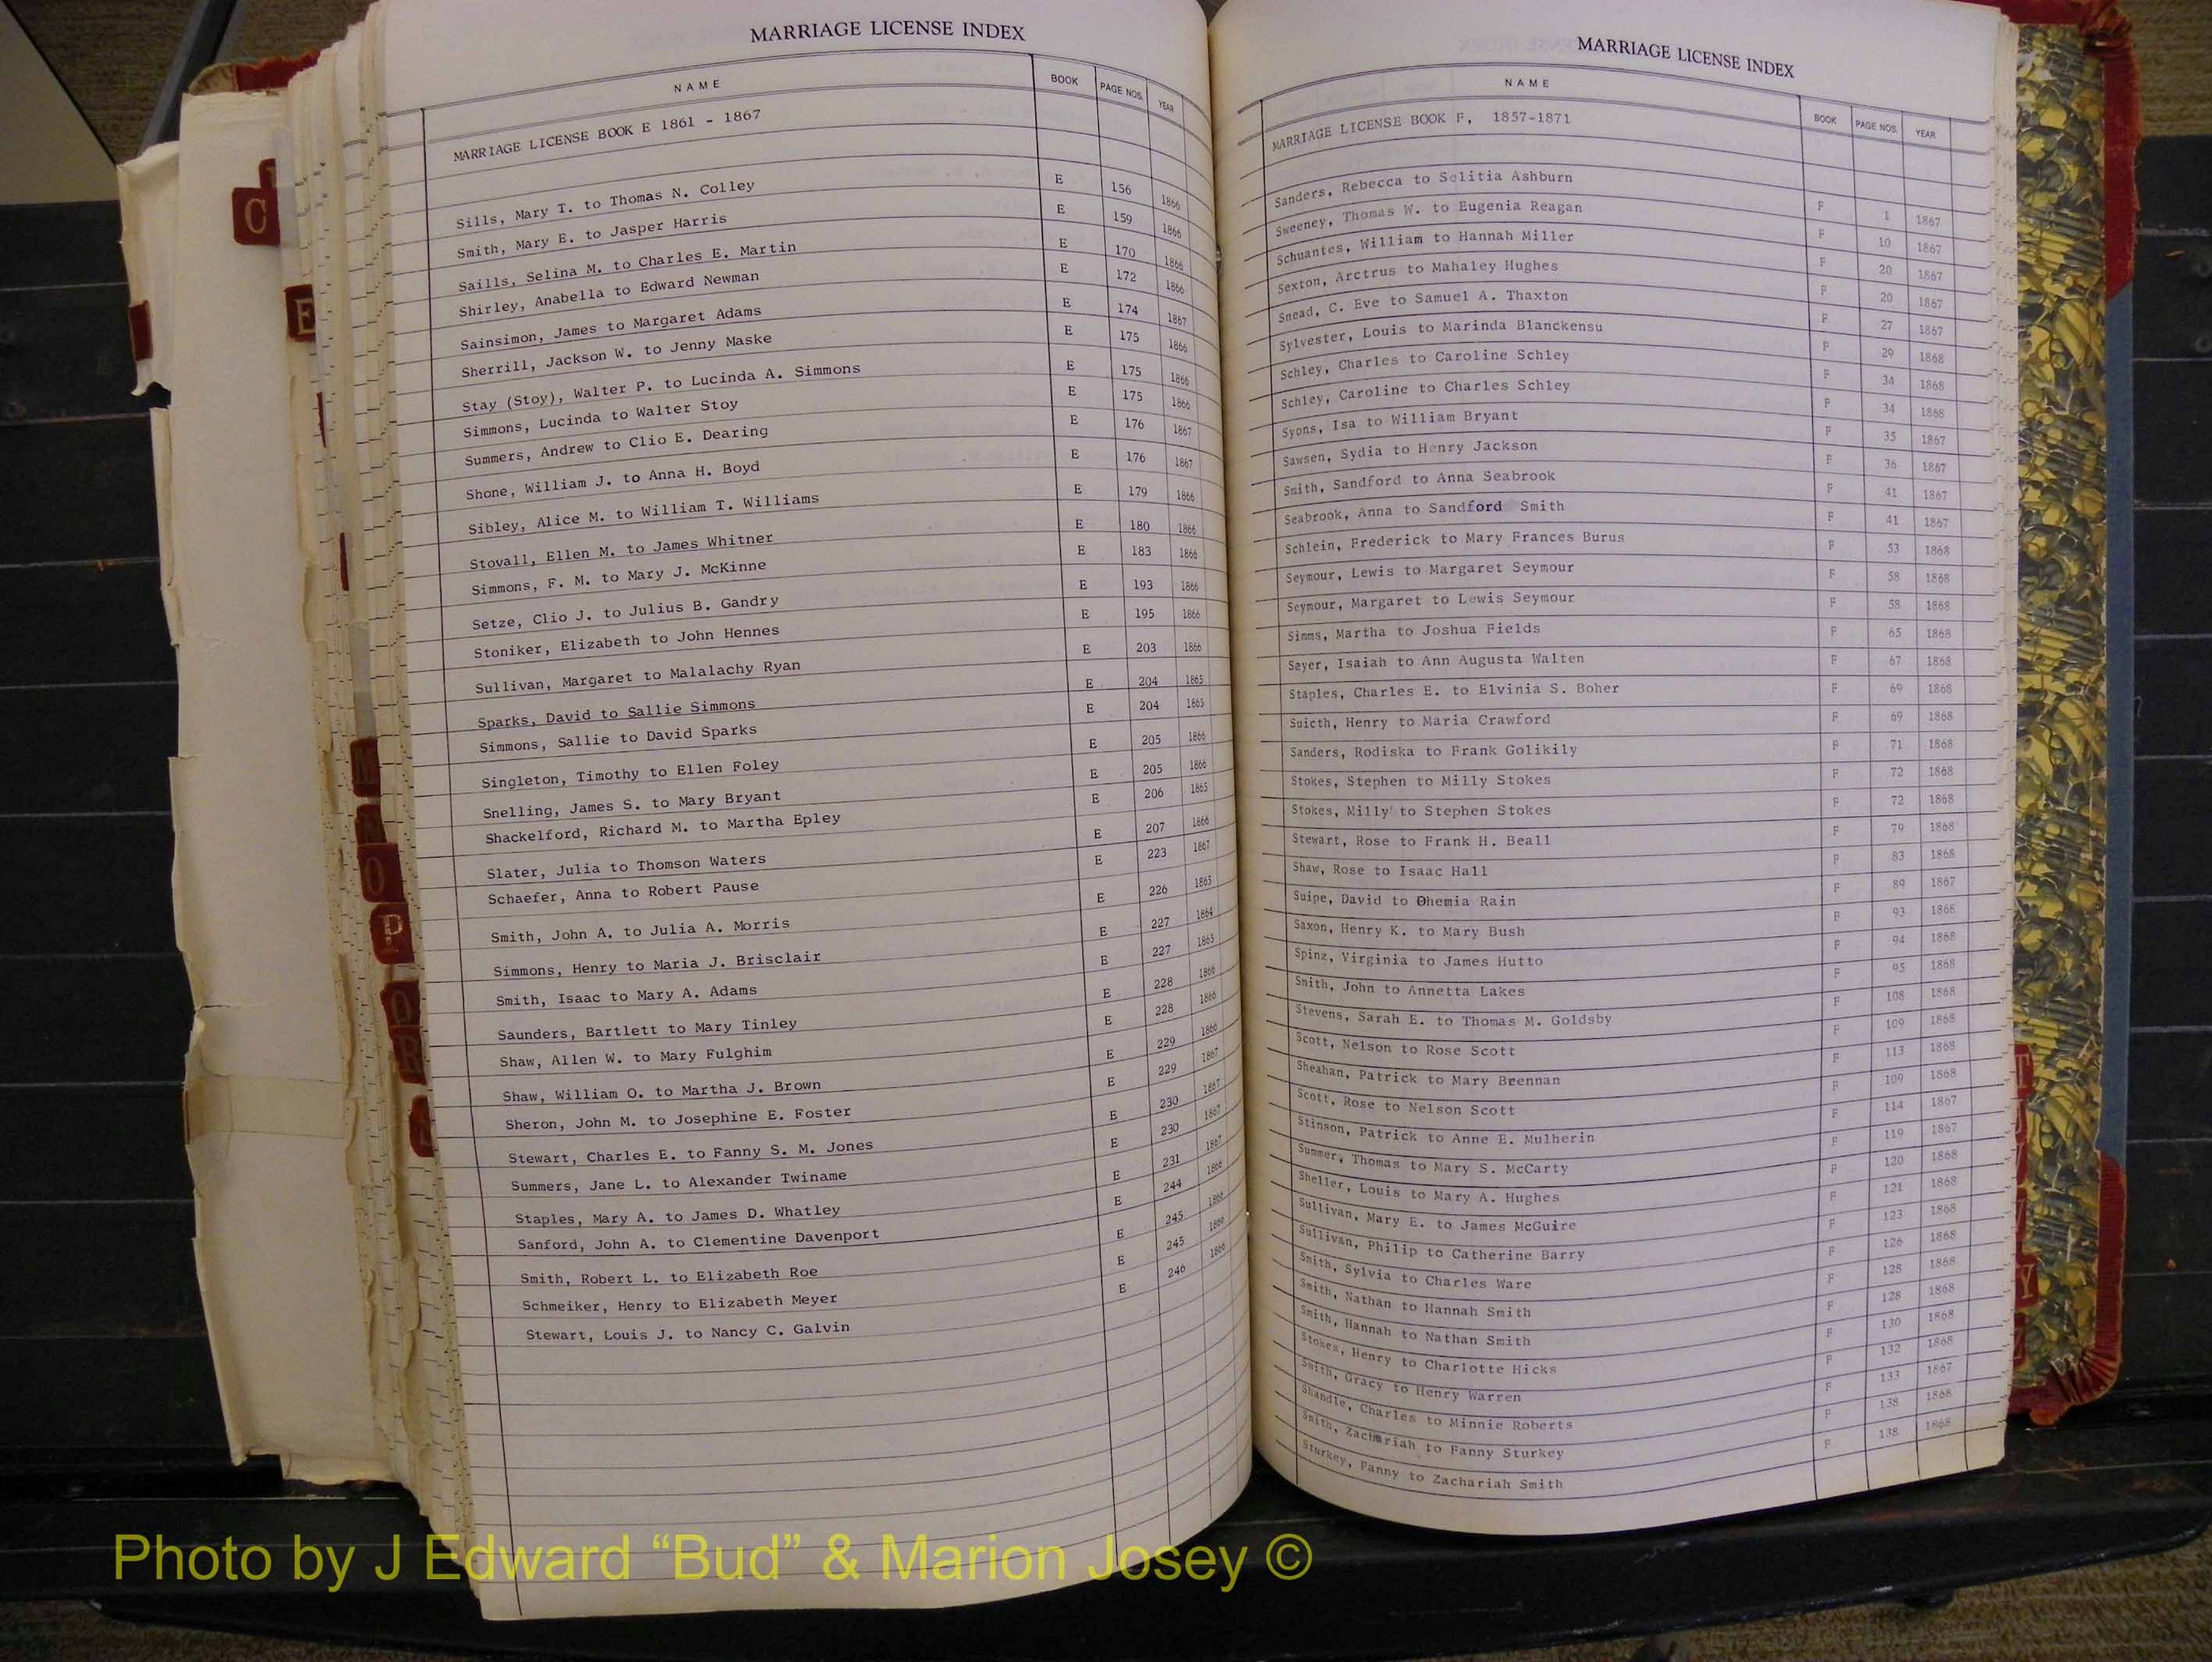 MARRIAGE LICENSE INDEX
NAME BOOK PAGE NOS. YEAR
MARRIAGE LICENSE BOOK E 1861 - 1867
Sills, Mary T. to Thomas N. Colley E 156 1866
Smith, Mary E. to Jasper Harris E 159 1866
Saills, Selina M. to Charles E. Martin E 170 1866
Shirley, Anabella to Edward Newman E 172 1866
Sainsimon, James to Margaret Adams E 174 1867
Sherrill, Jackson W. to Jenny Maske E 175 1866
Stay (Stoy), Walter P. to Lucinda A. Simmons E 175 1866
Simmons, Lucinda to Walter Stoy E 175 1866
Summers, Andrew to Clio E. Dearing E 176 1867
Shone, William J. to Anna H. Boyd E 176 1867
Sibley, Alice M. to William T. Williams E 179 1866
Stovall, Ellen M. to James Whitner E 180 1866
Simmons, F. M. to Mary J. McKinne E 183 1866
Setze, Clio J. to Julius B. Gandry E 193 1866
Stoniker, Elizabeth to John Hennes E 195 1866
Sullivan, Margaret to Malalachy Ryan E 203 1866
Sparks, David to Sallie Simmons E 204 1865
Simmons, Sallie to David Sparks E 204 1865
Singleton, Timothy to Ellen Foley E 205 1866
Snelling, James S. to Mary Bryant E 205 1866
Shackelford, Richard M. to Martha Epley E 206 1865
Slater, Julia to Thomson Waters E 207 1866
Schaefer, Anna to Robert Pause E 223 1867
Smith, John A. to Julia A. Morris E 226 1865
Simmons, Henry to Maria J. Brisclair E 227 1864
Smith, Isaac to Mary A. Adams E 227 1865
Saunders, Bartlett to Mary Tinley E 228 1866
Shaw, Allen W. to Mary Fulghim E 228 1866
Shaw, William O. to Martha J. Brown E 229 1866
Sheron, John M. to Josephine E. Foster E 229 1867
Stewart, Charles E. to Fanny S. M. Jones E 230 1867
Summers, Jane L. to Alexander Twiname E 230 1867
Staples, Mary A. to James D. Whatley E 231 1867
Sanford, John A. to Clementine Davenport E 244 1866
Smith, Robert L. to Elizabeth Roe E 245 1866
Schmeiker, Henry to Elizabeth Meyer E 245 1866
Stewart, Louis J. to Nancy C. Galvin E 246 1866
MARRIAGE LICENSE INDEX
NAME BOOK PAGE NOS. YEAR
MARRIAGE LICENSE BOOK F, 1857-1871
Sanders, Rebecca to Selitia Ashburn F 1 1867
Sweeney, Thomas W. to Eugenia Reagan F 10 1867
Schuantes, William to Hannah Miller F 20 1867
Sexton, Arctrus to Mahaley Hughes F 20 1867
Snead, C. Eve to Samuel A. Thaxton F 27 1867
Sylvester, Louis to Marinda Blanckensu F 29 1868
Schley, Charles to Caroline Schley F 34 1868
Schley, Caroline to Charles Schley F 34 1868
Syons, Isa to William Bryant F 35 1867
Sawsen, Sydia to Henry Jackson F 36 1867
Smith, Sandford to Anna Seabrook F 41 1867
Seabrook, Anna to Sandford Smith F 41 1867
Schlein, Frederick to Mary Frances Burus F 53 1868
Seymour, Lewis to Margaret Seymour F 58 1868
Seymour, Margaret to Lewis Seymour F 58 1868
Simms, Martha to Joshua Fields F 65 1868
Seyer, Isaiah to Ann Augusta Walten F 67 1868
Staples, Charles E. to Elvinia S. Boher F 69 1868
Suicth, Henry to Maria Crawford F 69 1868
Sanders, Rodiska to Frank Golikily F 71 1868
Stokes, Stephen to Milly Stokes F 72 1868
Stokes, Milly to Stephen Stokes F 72 1868
Stewart, Rose to Frank H. Beall F 79 1868
Shaw, Rose to Isaac Hall F 83 1868
Suipe, David to Ohemia Rain F 89 1867
Saxon, Henry K. to Mary Bush F 93 1868
Spinz, Virginia to James Hutto F 94 1868
Smith, John to Annetta Lakes F 95 1868
Stevens, Sarah E. to Thomas M. Goldsby F 108 1868
Scott, Nelson to Rose Scott F 109 1868
Sheahan, Patrick to Mary Brennan F 113 1868
Scott, Rose to Nelson Scott F 109 1868
Stinson, Patrick to Anne E. Mulherin F 114 1867
Summer, Thomas to Mary S. McCarty F 119 1867
Sheller, Louis to Mary A. Hughes F 120 1868
Sullivan, Mary E. to James McGuire F 121 1868
Sullivan, Philip to Catherine Barry F 123 1868
Smith, Sylvia to Charles Ware F 126 1868
Smith, Nathan to Hannah Smith F 128 1868
Smith, Hannah to Nathan Smith F 128 1868
Stokes, Henry to Charlotte Hicks F 130 1868
Smith, Gracy to Henry Warren F 132 1868
Shandle, Charles to Minnie Roberts F 133 1867
Smith, Zachariah to Fanny Sturkey F 138 1868
Sturkey, Fanny to Zachariah Smith F 138 1868
C
E
O
P
Q
R
T
Y
Photo by J Edward “Bud” & Marion Josey ©